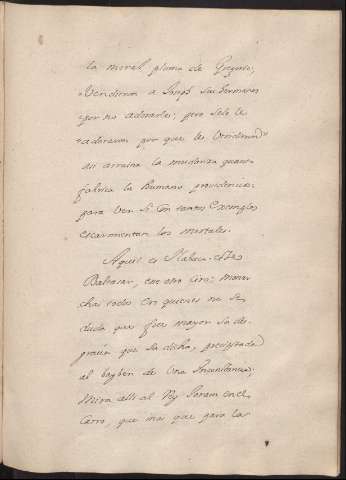 la moral pluma de Gregorio;
"Vendieron a Joseph sus hermanos
"por no adorarle; pero solo le
"adoraron por que le vendieron"
asi arruina la mudanza quanto
fabrica la humana providencia:
para ver si con tantos exemplos
escarmientan los mortales.
Aquel es
Baltasar, ese otro Ciro; monar
chas todos en quienes no se
duda que fue mayor su des
gracia que su dicha, precipitada
al bayben de una Inconstancia.
Mira alli al Rey en el
Carro, que mas que para la